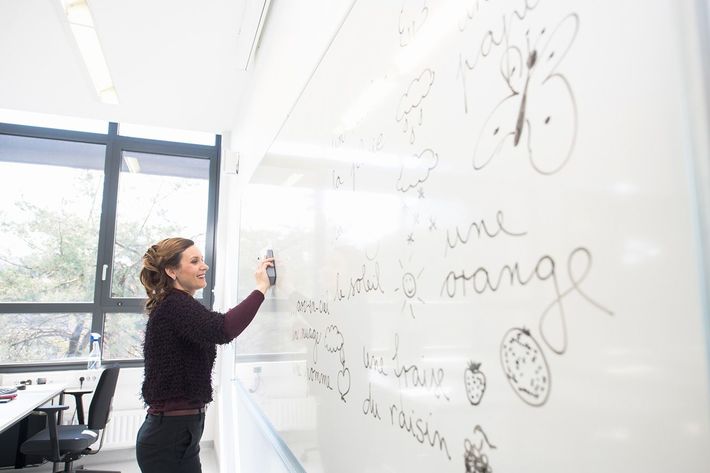 papi
la pluie
le soleil
arc-en-ciel
un nuage
pomme
une
orange
une fraise
du raisin